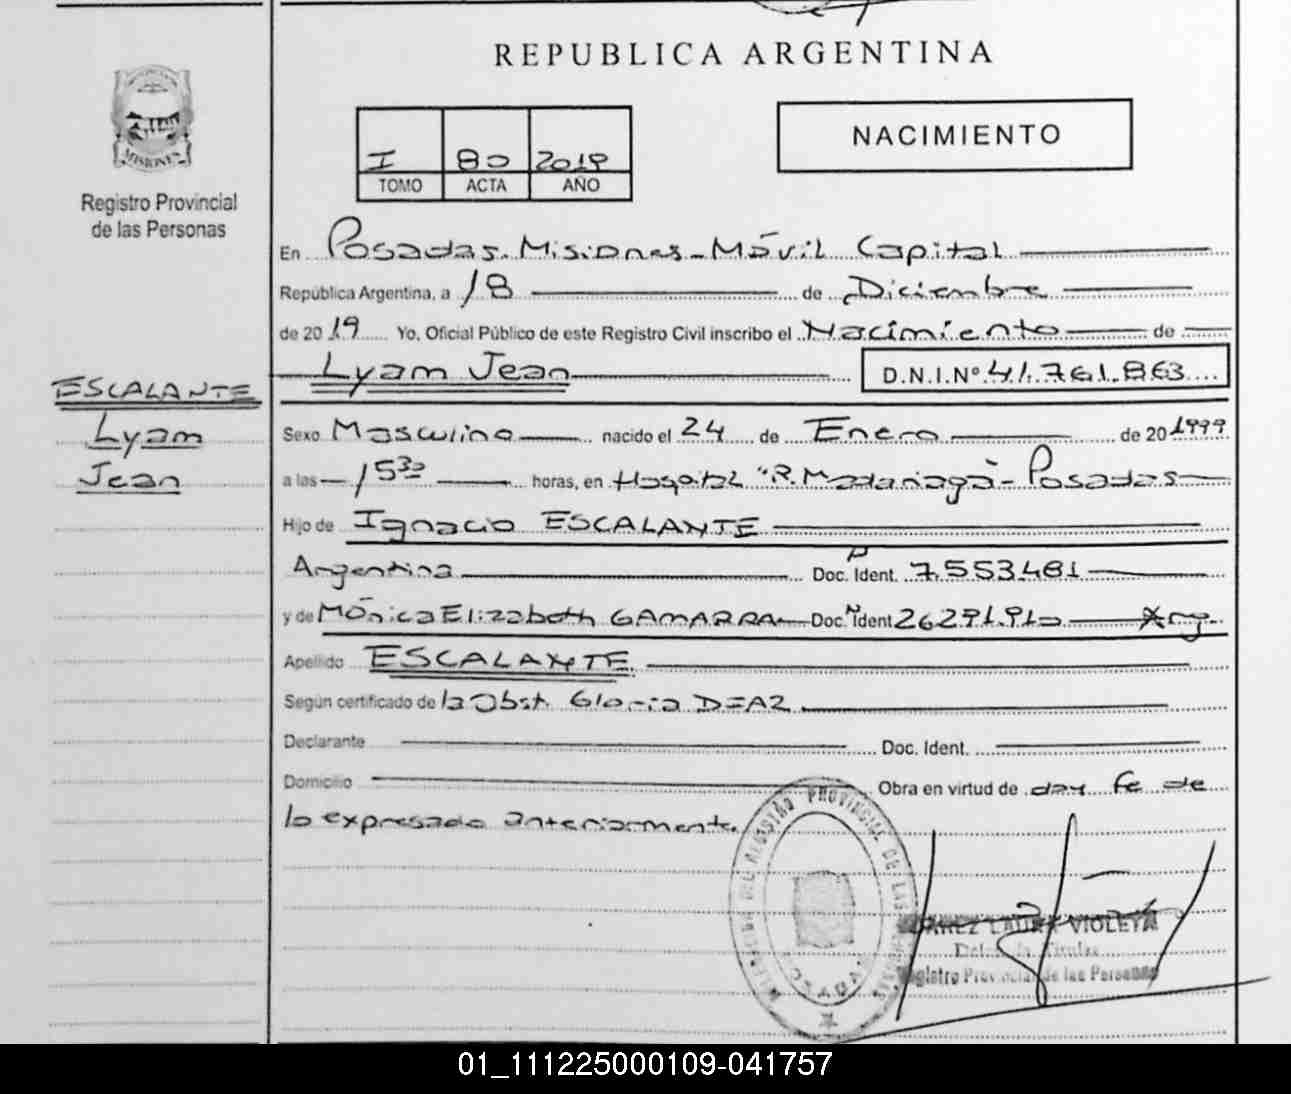 REPUBLICA ARGENTINA
MISIONES
Registro Provincial
de las Personas
I 80 2019
TOMO ACTA AÑO
NACIMIENTO
En Posadas. Misiones - Móvil Capital
República Argentina, a 18 de Diciembre
de 2019 Yo, Oficial Público de este Registro Civil inscribo el Nacimiento de
Lyam Jean D.N.I.Nº 41.761.863
ESCALANTE
Lyam
Jean
Sexo Masculino nacido el 24 de Enero de 20 1999
a las 15 30 horas, en Hospital "R. Madariaga" - Posadas
Hijo de Ignacio ESCALANTE
Argentina Doc. Ident. 7.553.481
y de Mónica Elizabeth GAMARRA Doc. Ident 26.291.910 Arg.
Apellido ESCALANTE
Según certificado de la Obst. Gloria DIAZ
Declarante Doc. Ident.
Domicilio Obra en virtud de dar fe de
lo expresado anteriormente.
REGISTRO PROVINCIAL DE LAS
POSADAS
LAURA VIOLETA
Registro Provincial de las Personas
01_111225000109-041757